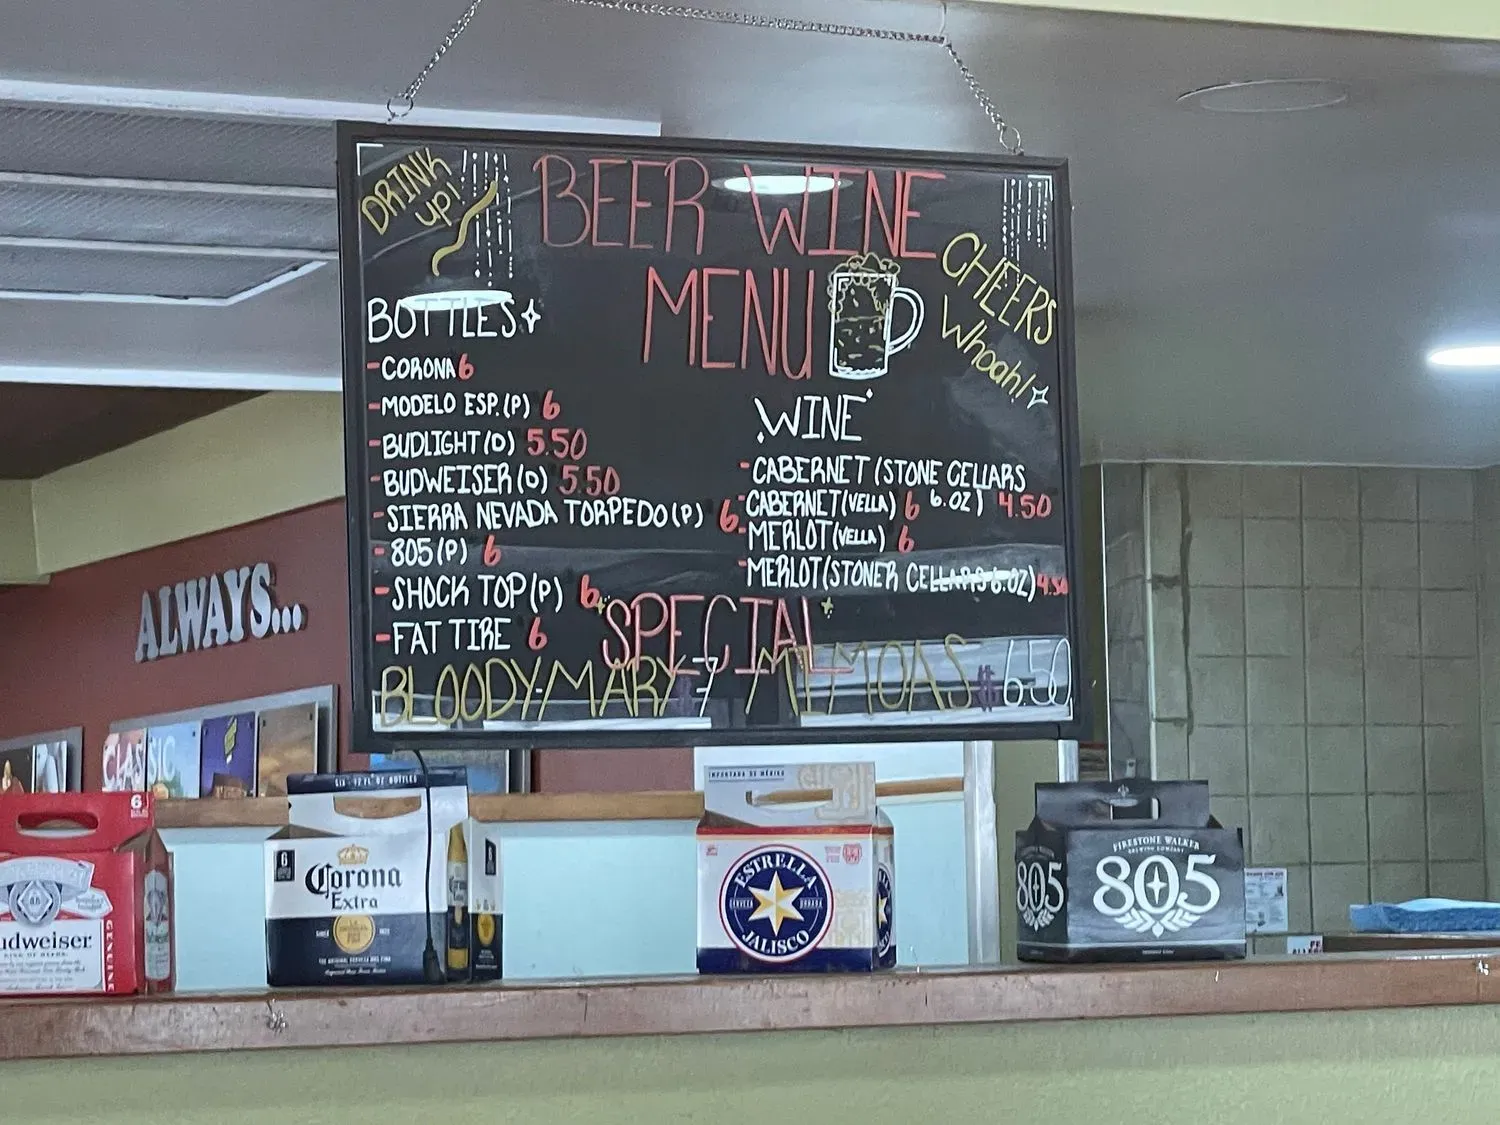 DRINK
UP!
BEER WINE
MENU
CHEERS
Whoah!
BOTTLES
-CORONA 6
-MODELO ESP.(P) 6
-BUDLIGHT(D) 5.50
-BUDWEISER(D) 5.50
-SIERRA NEVADA TORPEDO(P) 6
-805(P) 6
-SHOCK TOP(P) 6
-FAT TIRE 6
WINE
-CABERNET (STONE CELLARS
6.OZ) 4.50
-CABERNET(VELLA) 6
-MERLOT(VELLA) 6
-MERLOT(STONER CELLARS 6.OZ) 4.50
SPECIAL
BLOODY-MARY $7 MIMOAS $6.50
ALWAYS...
CLASSIC
6
Budweiser
KING OF BEERS
GENUINE
SIX-12 FL. OZ. BOTTLES
6
Corona
Extra
6
IMPORTADA DE MÉXICO
ESTRELLA
JALISCO
805
FIRESTONE WALKER
BREWING COMPANY
805